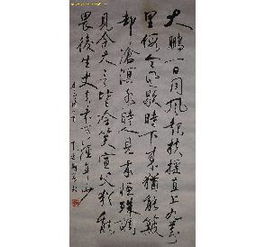 大鵬一日同風起扶搖直上九萬
里假令風歇時下來猶能簸
却滄溟水時人見我恒殊調
見余大言皆冷笑宣父猶能
畏後生丈夫未可輕年少